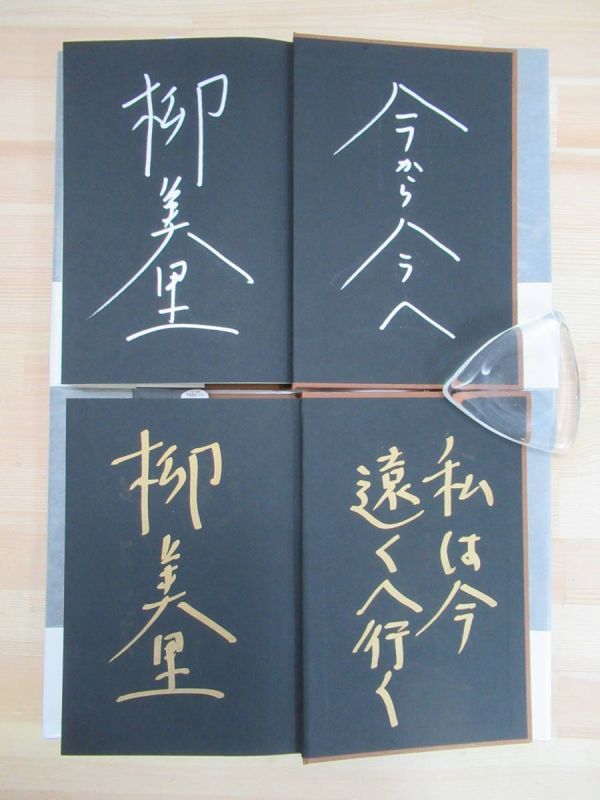 今から今へ
柳美里
私は今
遠くへ行く
柳美里